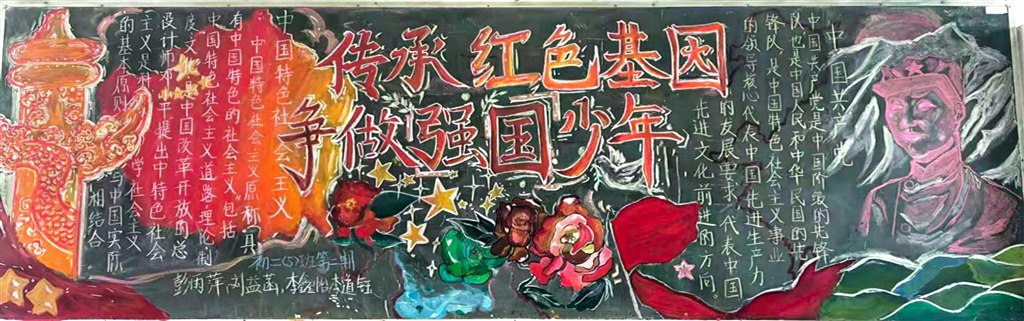 传承红色基因
争做强国少年
中国特色社会主义
中国特色社会主义原称"具
有中国特色的社会主义"包括
中国特色社会主义道路理论制
度文化是中国改革开放的总
设计师邓小平提出中特色社会
主义是科学社会主义
的基本原则与中国实际
相结合
初二(5)班第二期
彭炳萍,刘益菡,李道钰
中国共产党
中国共产党是中国阶级的先锋
队也是中国民和中华民国的先
锋队,是中国特色社会主义事业
的领导核心代表中国先进生产力
的发展要求,代表中国
先进文化前进的方向。